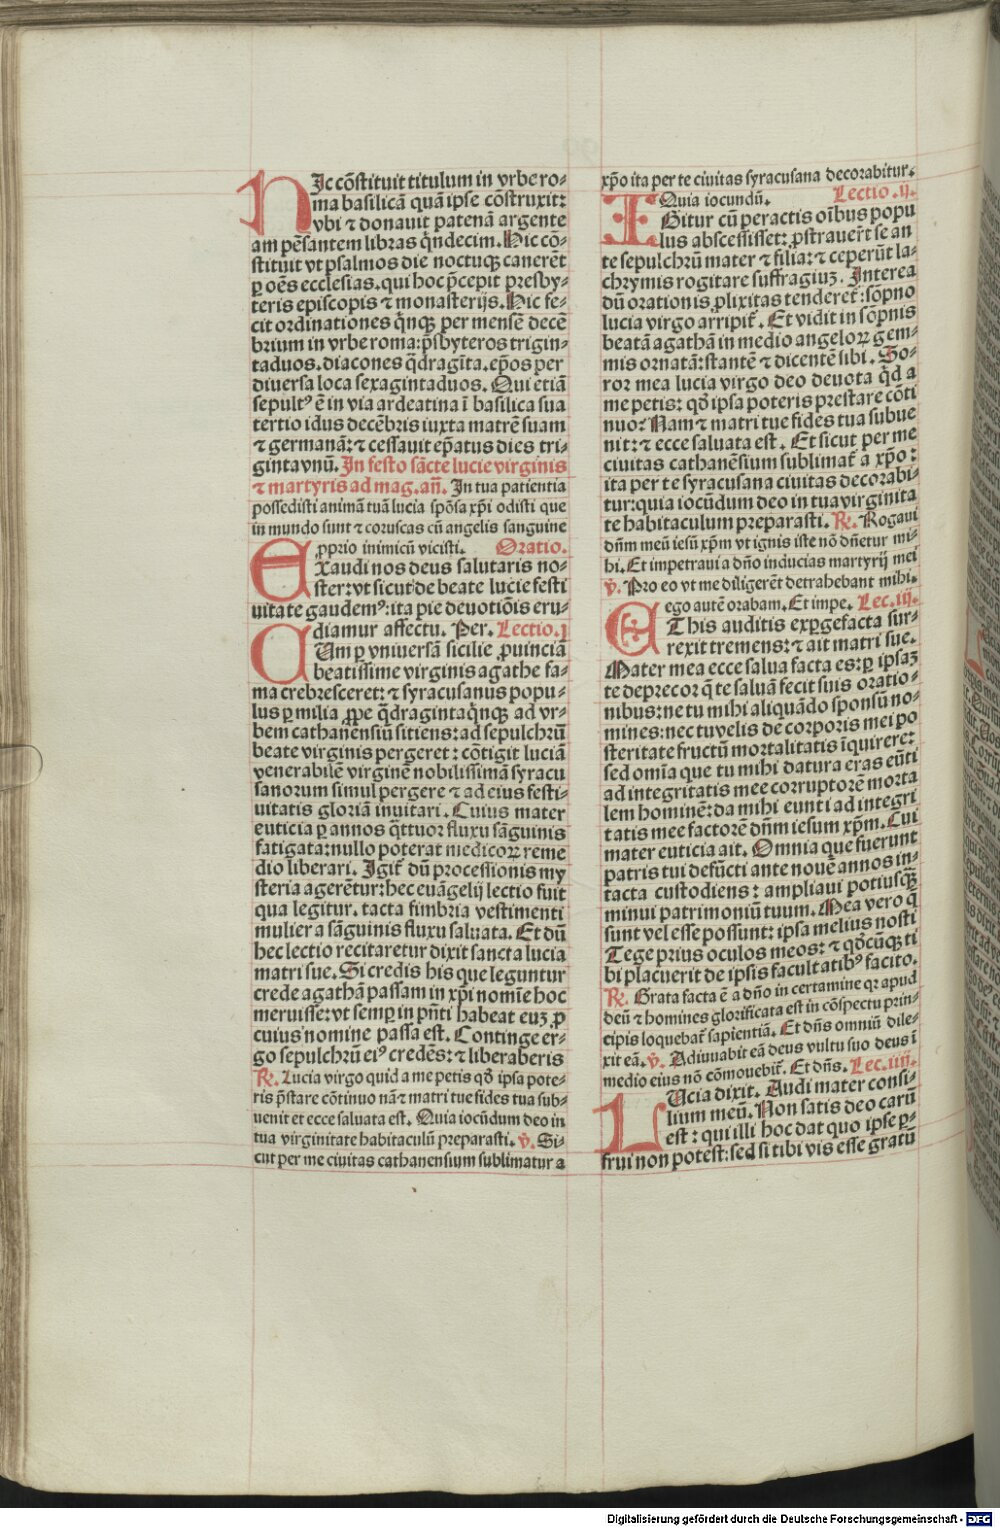 HIc cōstituit titulum in vrbe ro-
ma basilicā quā ipse cōstruxit:
vbi ⁊ donauit patenā argente
am pēsantem libras q̄ndecim. Hic cō-
stituit vt psalmos die noctuqꝫ canerēt
ꝑ oēs ecclesias. qui hoc p̄cepit presby-
teris episcopis ⁊ monasterijs. Hic fe-
cit ordinationes q̄nqꝫ per mensē decē
brium in vrbe roma: p̄sbyteros trigin-
taduos. diacones q̄dragīta. ep̄os per
diuersa loca sexagintaduos. Qui etiā
sepultꝰ ē in via ardeatina ī basilica sua
tertio idus decēbris iuxta matrē suam
⁊ germanā: ⁊ cessauit ep̄atus dies tri-
ginta vnū. In festo sācte lucie virginis
⁊ martyris ad mag. añ. In tua patientia
possedisti animā tuā lucia spōsa xp̄i odisti que
in mundo sunt ⁊ coruscas cū angelis sanguine
ꝓprio inimicū vicisti. Oratio.
EXaudi nos deus salutaris no-
ster: vt sicut de beate lucie festi
uitate gaudemꝰ: ita pie deuotiōis eru-
diamur affectu. Per. Lectio. j
CUm ꝑ vniuersā sicilie ꝓuinciā
beatissime virginis agathe fa-
ma crebresceret: ⁊ syracusanus popu-
lus ꝑ milia ꝓpe q̄draginta q̄nqꝫ ad vr-
bem cathanensiū sitiens: ad sepulchrū
beate virginis pergeret: cōtigit luciā
venerabilē virginē nobilissimā syracu
sanorum simul pergere ⁊ ad eius festi-
uitatis gloriā inuitari. Cuius mater
euticia ꝑ annos q̄ttuor fluxu sāguinis
fatigata: nullo poterat medicoꝝ reme
dio liberari. Igit̄ dū processionis my
steria agerētur: hec euāgelij lectio fuit
qua legitur. tacta fimbria vestimenti
mulier a sāguinis fluxu saluata. Et dū
hec lectio recitaretur dixit sancta lucia
matri sue. Si credis his que leguntur
crede agathā passam in xp̄i nomīe hoc
meruisse: vt semꝑ in p̄nti habeat euꝫ ꝓ
cuius nomine passa est. Continge er-
go sepulchrū eiꝰ credēs: ⁊ liberaberis
℟. Lucia virgo quid a me petis qḋ ipsa pote-
ris p̄stare cōtinuo nā ⁊ matri tue fides tua sub-
uenit et ecce saluata est. Quia iocūdum deo in
tua virginitate habitaculū preparasti. ℣. Si-
cut per me ciuitas cathanensium sublimatur a
xp̄o ita per te ciuitas syracusana decorabitur.
Quia iocundū. Lectio. ij.
IGitur cū peractis oībus popu
lus abscessisset: ꝓstrauerūt se an
te sepulchrū mater ⁊ filia: ⁊ ceperūt la-
chrymis rogitare suffragiuꝫ. Interea
dū orationis ꝓlixitas tenderet̄: sōpno
lucia virgo arripit̄. Et vidit in sōpnis
beatā agathā in medio angeloꝝ gem-
mis ornatā: stantē ⁊ dicentē sibi. So-
ror mea lucia virgo deo deuota q̄d a
me petis: qḋ ipsa poteris prestare cōti
nuo? Nam ⁊ matri tue fides tua subue
nit: ⁊ ecce saluata est. Et sicut per me
ciuitas cathanēsium sublimat̄ a xp̄o:
ita per te syracusana ciuitas decorabi-
tur: quia iocūdum deo in tua virginita
te habitaculum preparasti. ℟. Rogaui
dn̄m meū iesū xp̄m vt ignis iste nō dn̄etur mi-
hi. Et impetraui a dn̄o inducias martyrij mei
℣. Pro eo vt me diligerēt detrahebant mihi.
ego autē orabam. Et impe. Lec. iij.
EThis auditis expgefacta sur-
rexit tremens: ⁊ ait matri sue.
Mater mea ecce salua facta es: ꝑ ipsaꝫ
te deprecor q̄ te saluā fecit suis oratio-
nibus: ne tu mihi aliquādo sponsū no-
mines: nec tu velis de corporis mei po
steritate fructū mortalitatis īquirere:
sed omīa que tu mihi datura eras eūti
ad integritatis mee corruptorē morta
lem hominē: da mihi eunti ad integri
tatis mee factorē dn̄m iesum xp̄m. Cui
mater euticia ait. Omnia que fuerunt
patris tui defūcti ante nouē annos in-
tacta custodiens: ampliaui potiusqꝫ
minui patrimoniū tuum. Mea vero q̄
sunt vel esse possunt: ipsa melius nosti
Tege prius oculos meos: ⁊ qḋcūqꝫ ti
bi placuerit de ipsis facultatibꝰ facito.
℟. Grata facta ē a dn̄o in certamine qr apud
deū ⁊ homines glorificata est in cōspectu prin-
cipis loquebat̄ sapientiā. Et dn̄s omniū dile-
xit eā. ℣. Adiuuabit eā deus vultu suo deus ī
medio eius nō cōmouebit̄. Et dn̄s. Lec. iiij.
LUcia dixit. Audi mater consi-
lium meū. Non satis deo carū
est: qui illi hoc dat quo ipse ꝑ-
frui non potest: sed si tibi vis esse gratū
Digitalisierung gefördert durch die Deutsche Forschungsgemeinschaft - DFG